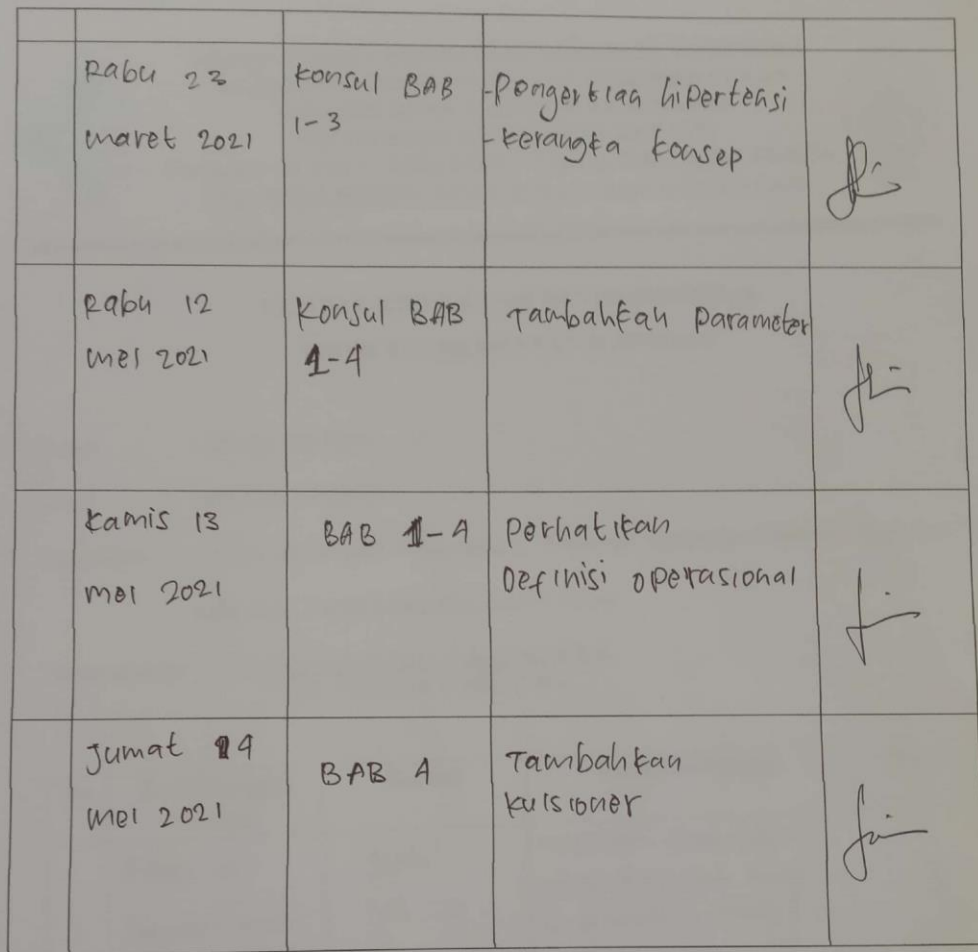 Rabu 23
maret 2021
Konsul BAB
1-3
-Pengertian hipertensi
-kerangka konsep
Rabu 12
mei 2021
Konsul BAB
1-4
Tambahkan parameter
kamis 13
mei 2021
BAB 1-4
perhatikan
Definisi operasional
Jumat 14
mei 2021
BAB 4
Tambahkan
kuisioner